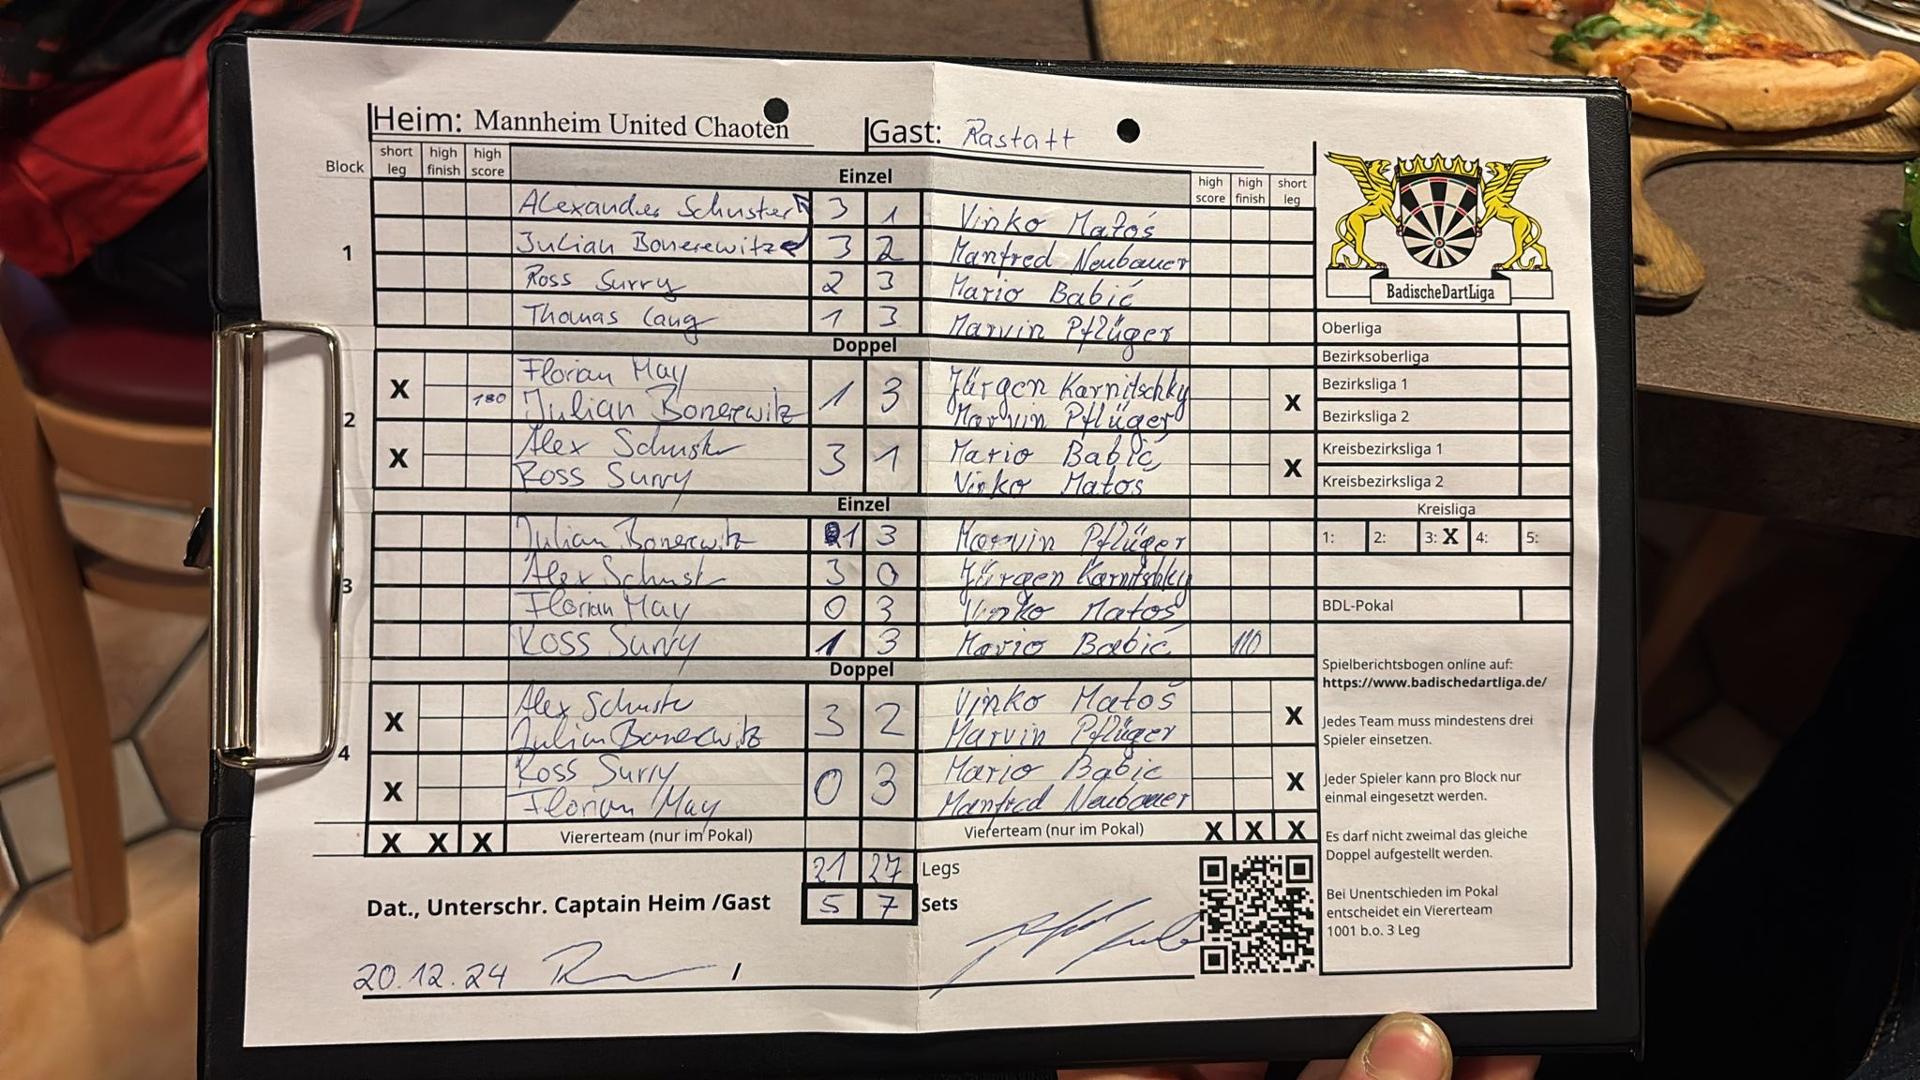 Heim: Mannheim United Chaoten
Gast: Rastatt
Block short leg high finish high score Einzel high score high finish short leg
1
Alexander Schuster 3 1 Vinko Matoš
Julian Bonerewitz 3 2 Manfred Neubauer
Ross Surry 2 3 Mario Babić
Thomas Lang 1 3 Marvin Pflüger
Doppel
2
Florian May Jürgen Karnitschky
X 180 Julian Bonerewitz 1 3 Marvin Pflüger X
Alex Schuster Mario Babić
X Ross Surry 3 1 Vinko Matoš X
Einzel
3
Julian Bonerewitz 1 3 Marvin Pflüger
Alex Schust 3 0 Jürgen Karnitschky
Florian May 0 3 Vinko Matoš
Ross Surry 1 3 Mario Babić 110
Doppel
4
Alex Schuste Vinko Matoš
X Julian Bonerewitz 3 2 Marvin Pflüger X
Ross Surry Mario Babic
X Florian May 0 3 Manfred Neubauer X
X X X Viererteam (nur im Pokal) Viererteam (nur im Pokal) X X X
21 27 Legs
Dat., Unterschr. Captain Heim /Gast 5 7 Sets
20.12.24
BadischeDartLiga
Oberliga
Bezirksoberliga
Bezirksliga 1
Bezirksliga 2
Kreisbezirksliga 1
Kreisbezirksliga 2
Kreisliga
1: 2: 3: X 4: 5:
BDL-Pokal
Spielberichtsbogen online auf:
https://www.badischedartliga.de/
Jedes Team muss mindestens drei
Spieler einsetzen.
Jeder Spieler kann pro Block nur
einmal eingesetzt werden.
Es darf nicht zweimal das gleiche
Doppel aufgestellt werden.
Bei Unentschieden im Pokal
entscheidet ein Viererteam
1001 b.o. 3 Leg